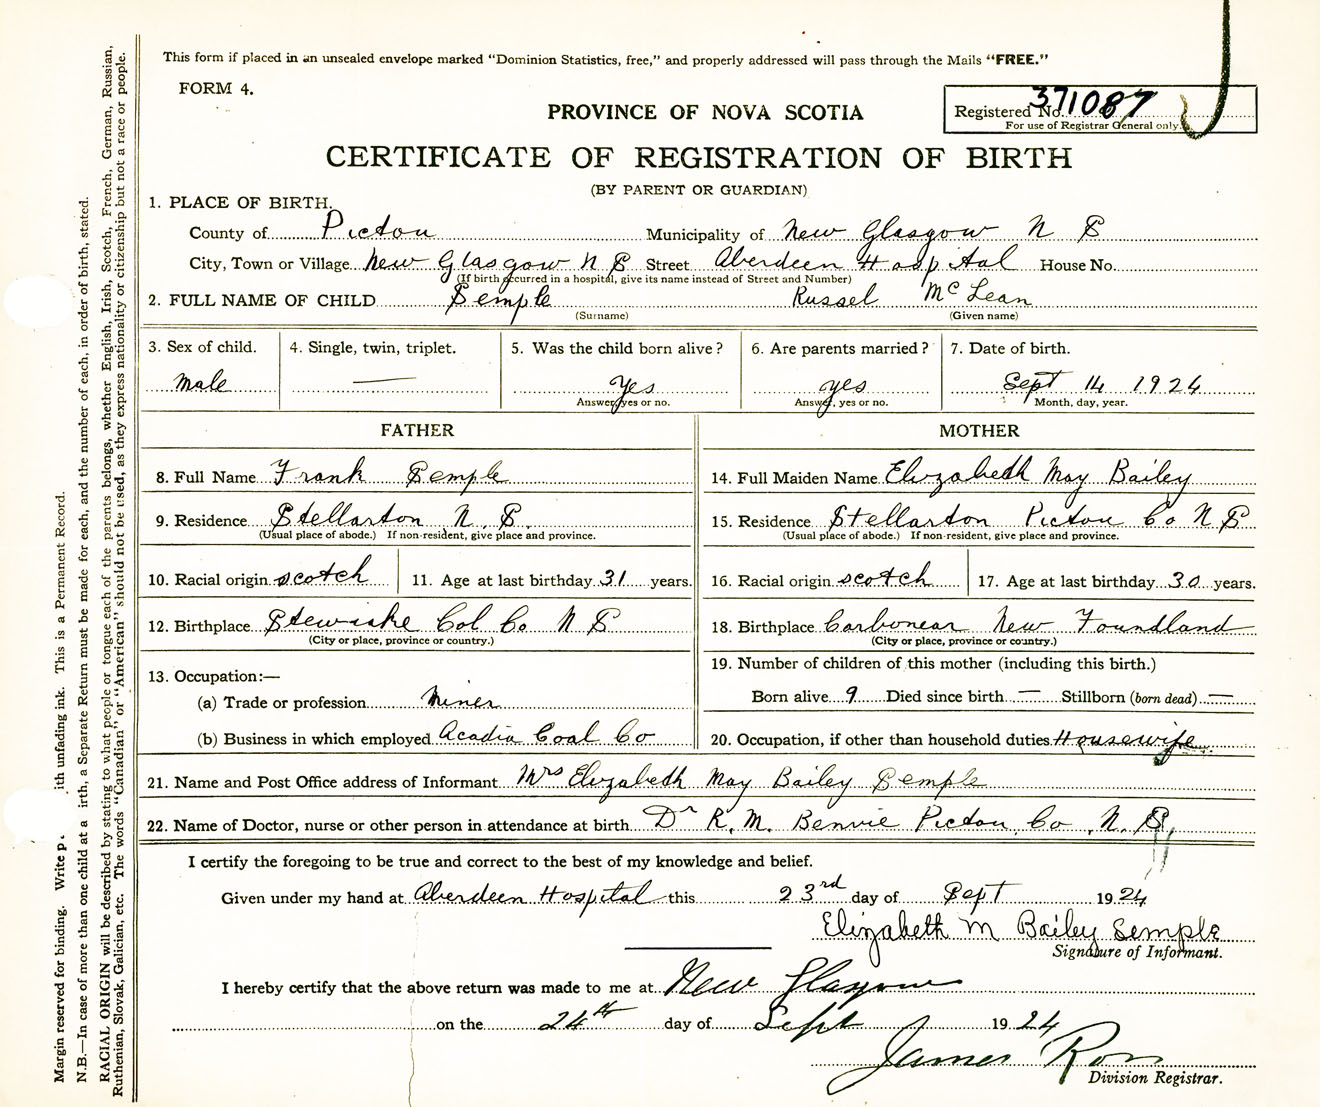 This form if placed in an unsealed envelope marked "Dominion Statistics, free," and properly addressed will pass through the Mails "FREE."
FORM 4.
PROVINCE OF NOVA SCOTIA
Registered No. 371087
For use of Registrar General only.
CERTIFICATE OF REGISTRATION OF BIRTH
(BY PARENT OR GUARDIAN)
1. PLACE OF BIRTH.
County of Pictou Municipality of New Glasgow N S
City, Town or Village New Glasgow N S Street Aberdeen Hospital House No.
(If birth occurred in a hospital, give its name instead of Street and Number)
2. FULL NAME OF CHILD Semple Russel McLean
(Surname) (Given name)
3. Sex of child. 4. Single, twin, triplet. 5. Was the child born alive? 6. Are parents married? 7. Date of birth.
Male — Yes yes Sept 14 1924
Answer, yes or no. Answer, yes or no. Month, day, year.
FATHER MOTHER
8. Full Name Frank Semple 14. Full Maiden Name Elizabeth May Bailey
9. Residence Stellarton N. S. 15. Residence Stellarton Pictou Co N S
(Usual place of abode.) If non-resident, give place and province. (Usual place of abode.) If non-resident, give place and province.
10. Racial origin scotch 11. Age at last birthday 31 years. 16. Racial origin scotch 17. Age at last birthday 30 years.
12. Birthplace Stewiake Col Co N S 18. Birthplace Carbonear New Foundland
(City or place, province or country.) (City or place, province or country.)
13. Occupation:— 19. Number of children of this mother (including this birth.)
(a) Trade or profession Miner Born alive 9 Died since birth — Stillborn (born dead) —
(b) Business in which employed Acadia Coal Co 20. Occupation, if other than household duties Housewife
21. Name and Post Office address of Informant Mrs Elizabeth May Bailey Semple
22. Name of Doctor, nurse or other person in attendance at birth Dr R. M. Benvie Pictou Co N. S.
I certify the foregoing to be true and correct to the best of my knowledge and belief.
Given under my hand at Aberdeen Hospital this 23rd day of Sept 1924
Elizabeth M Bailey Semple
Signature of Informant.
I hereby certify that the above return was made to me at New Glasgow
on the 24th day of Sept 1924
James Ross
Division Registrar.
Margin reserved for binding. Write ith unfading ink. This is a Permanent Record.
N.B.—In case of more than one child at a irth, a Separate Return must be made for each, and the number of each, in order of birth, stated.
RACIAL ORIGIN will be described by stating to what people or tongue each of the parents belongs, whether English, Irish, Scotch, French, German, Russian,
Ruthenian, Slovak, Galician, etc. The words "Canadian" or "American" should not be used, as they express nationality or citizenship but not a race or people.